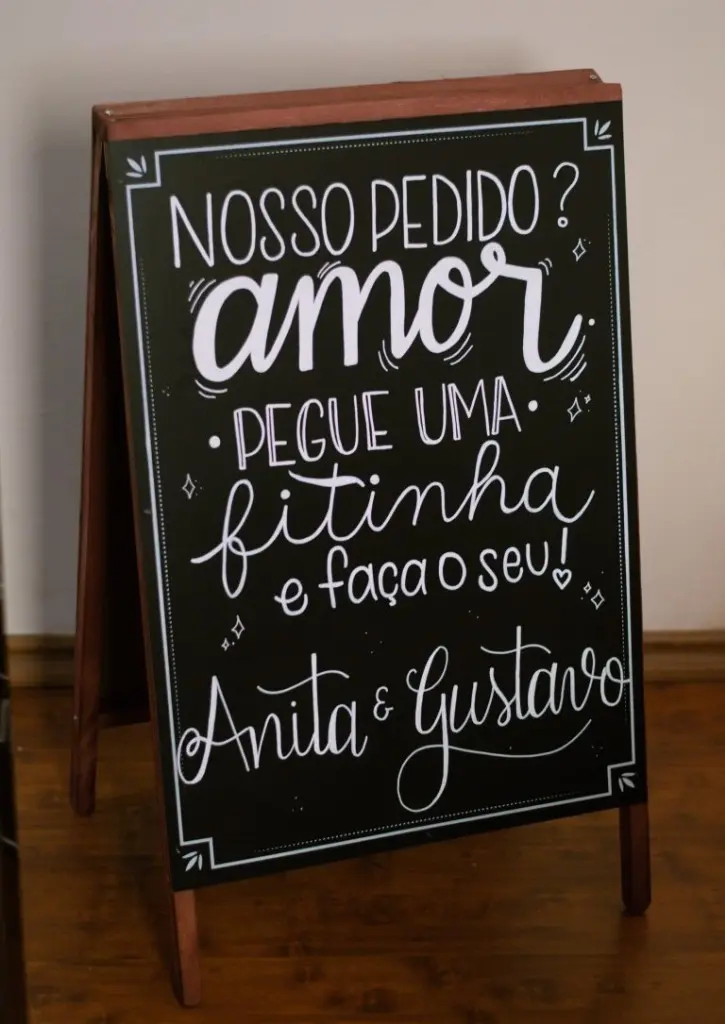 NOSSO PEDIDO?
amor
• PEGUE UMA •
fitinha
e faça o seu!
Anita & Gustavo